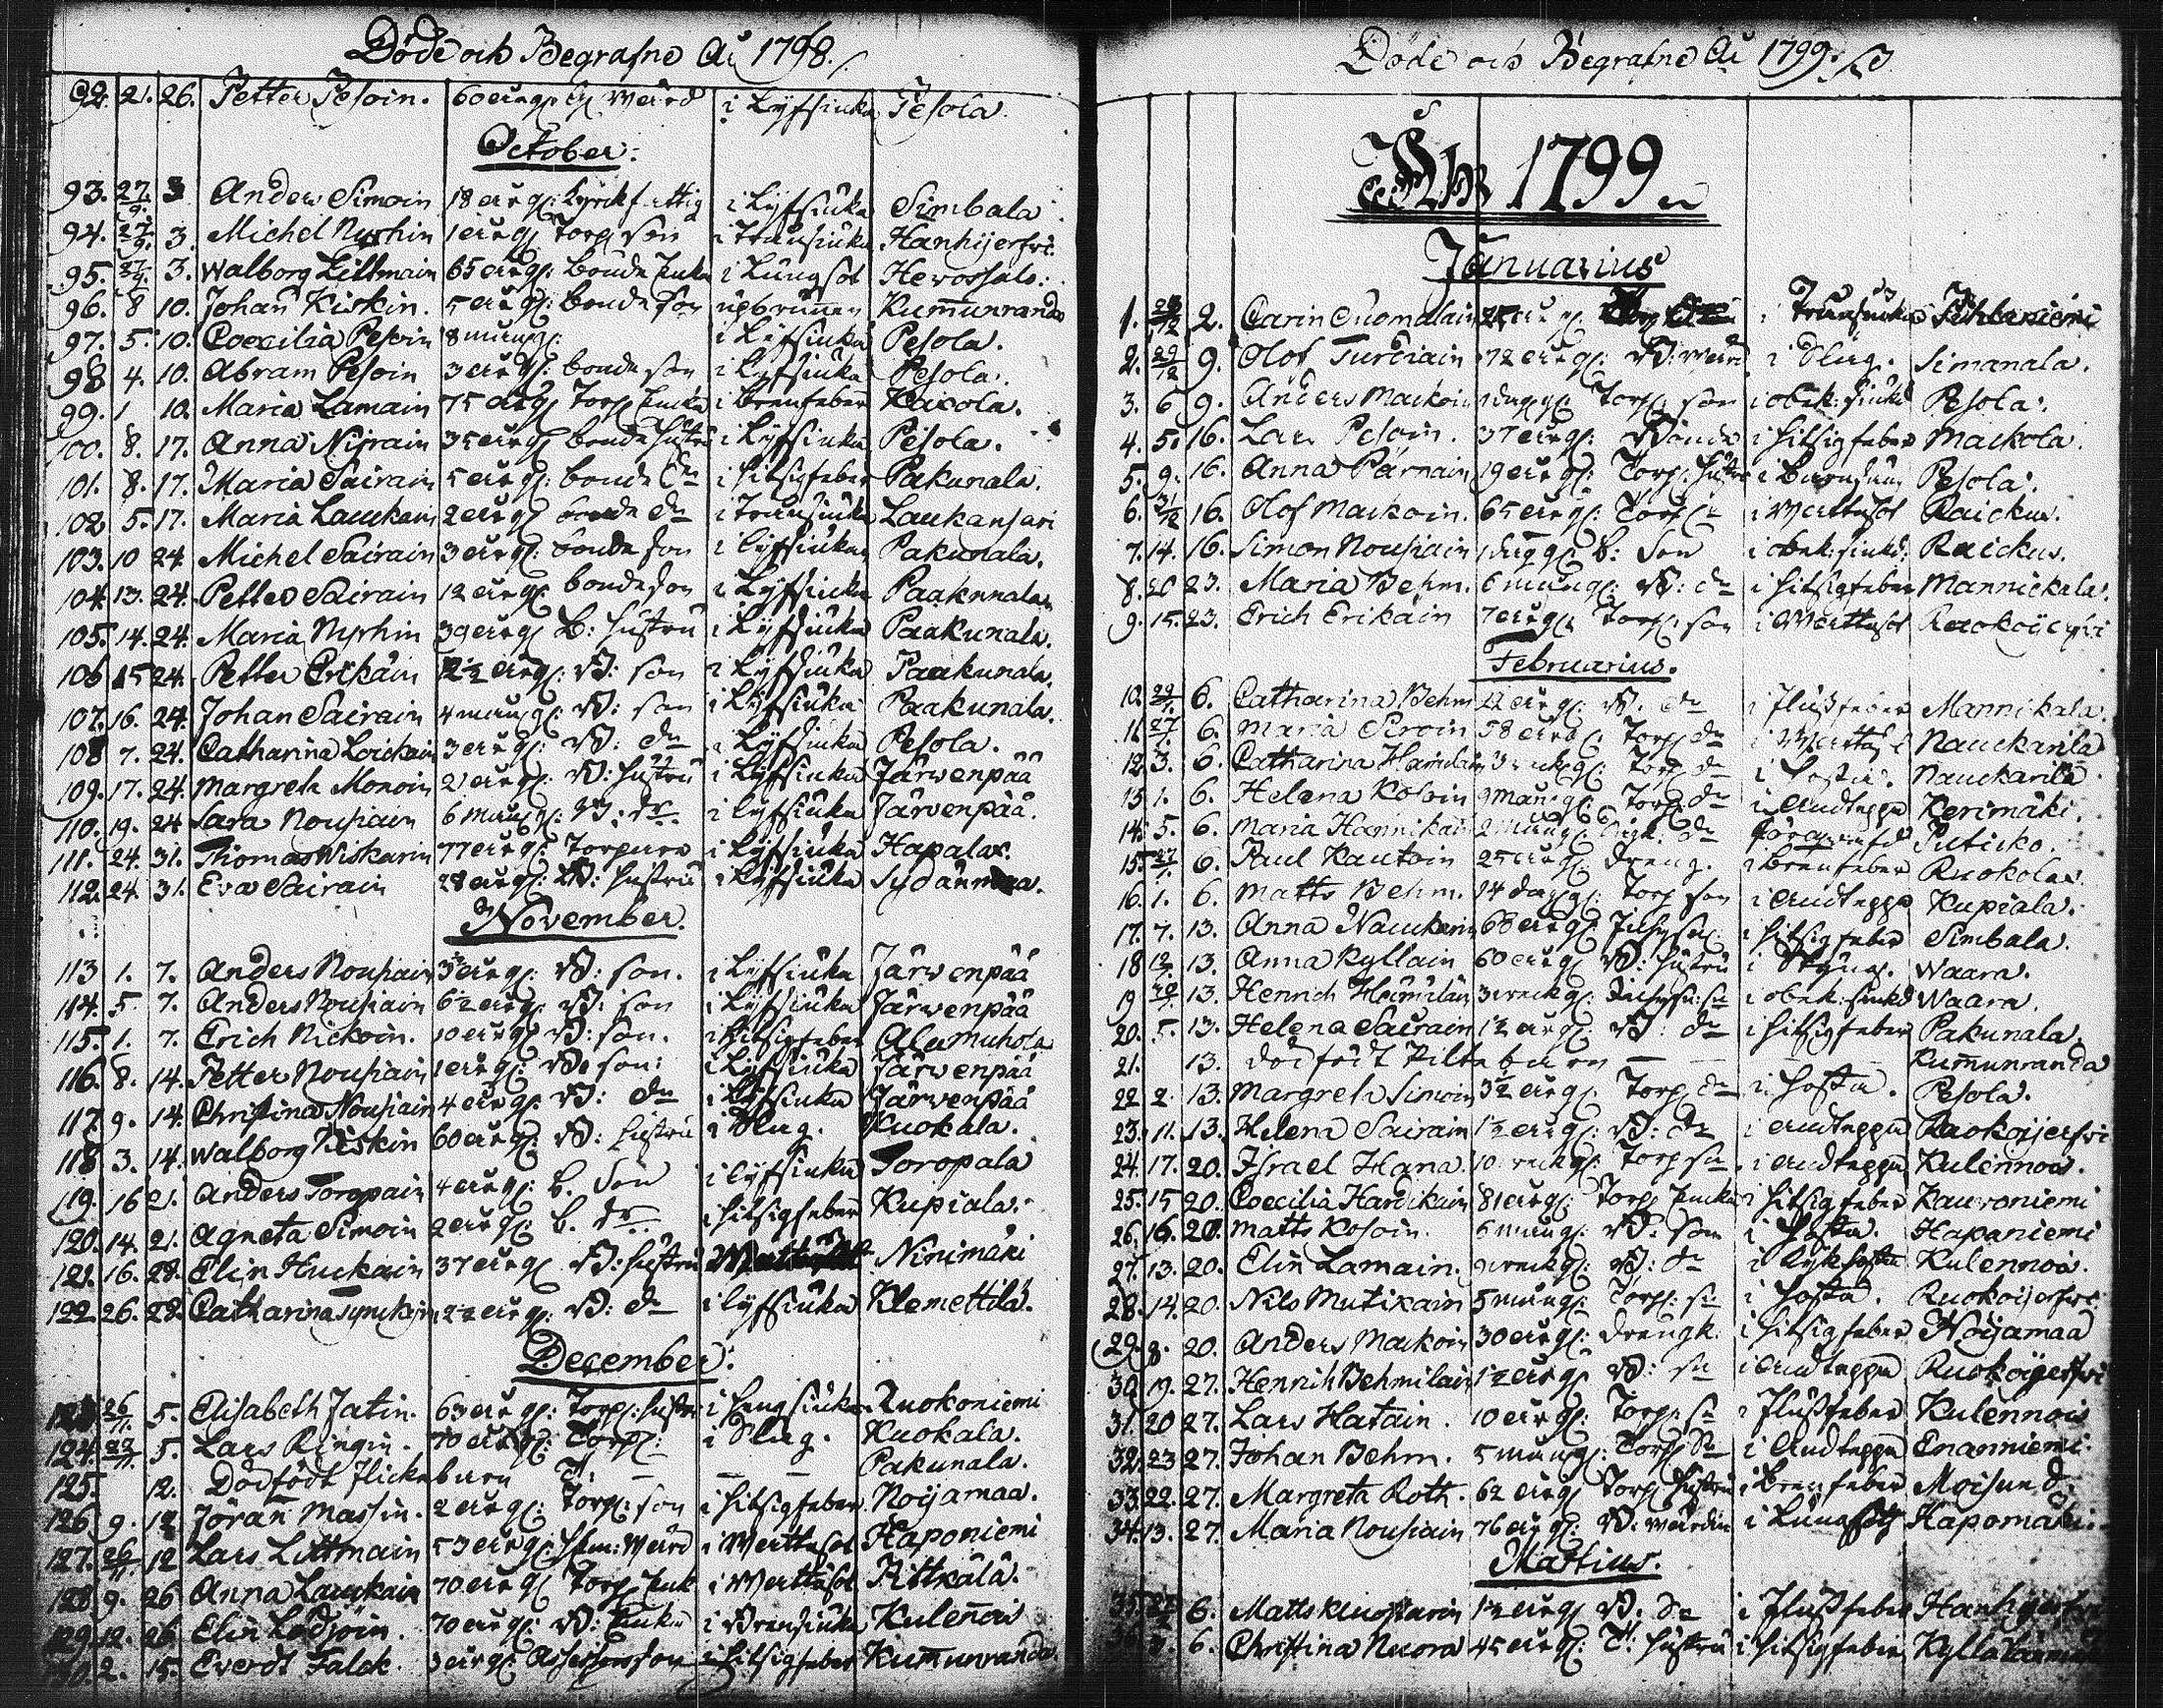 Döde och Begrafne Aⁿ 1798.
92. 21. 26. Petter Pesoin. 60 år g: i Lyfsiuka Pesola.
October.
93. 27/9. 3 Anders Simoin 18 år g: Kyrckfattig i Lyfsiuka Simbala
94. 27/9. 3. Michel Nyrhin 1 år g: Torp son Hanhijerfvi.
95. 27/9. 3. Walborg Littmain 65 år g: bonde Enka i Lungsot
96. 8 10. Johan Kiskin. 5 år g: bonde son upbrunnen Kummunranda
97. 5. 10. Coecilia Pesoin 8 mån g: i Lyfsiuka Pesola.
98 4. 10. Abram Pesoin 3 år g: bonde son i Lyfsiuka Pesola.
99. 1 10. Maria Lamain 75 år g: Torp Enka i brenfeber
100. 8. 17. Anna Nijrain 35 år g: bonde hustru i Lyfsiuka Pesola.
101. 8. 17. Maria Sairain 5 år g: bonde Dr i hitsigfeber Pakunala.
102 5. 17. Maria Lauckain 2 år g: bonde dr Laukansari
103. 10 24 Michel Sairain 3 år g: bonde son i lyfsiuka Pakunala.
104. 13. 24. Petter Sairain 12 år g: bonde son i Lyfsiuka Paakunala
105. 14. 24. Maria Nyrhin 39 år g: B: hustru i Lyfsiuka Paakunala.
106 15 24. Petter Erikäin 2½ år g: B: son i Lyfsiuka Paakunala.
107. 16. 24. Johan Sairain 4 mån g: B: son i Lyfsiuka Paakunala.
108 7. 24. Catharina Loickain 3 år g: B: dr i Lyfsiuka Pesola.
109. 17. 24. Margreta Monoin 21 år g: B: hustru i Lyfsiuka Järwenpää
110. 19. 24 Sara Nousiain 6 mån g: B: dr. i lyfsiuka Järwenpää.
111. 24. 31. Thomas Wiskarin 77 år g: Torpare i Lyfsiuka Hapala.
112. 24. 31. Eva Sairain 28 år g: B: hustru i Lyfsiuka Sydänmaa.
November.
113 1. 7. Anders Nousiain B: son. i Lyfsiuka Järwenpää
114. 5. 7. Anders Nousiain 6½ år g: B: son i Lyfsiuka Järwenpää
115. 1. 7. Erich Nickoin. 10 år g: B: son. i hitsigfeber Alamuhola
116. 8. 14. Petter Nousiain 1 år g: B: son: i Lyfsiuka Järwenpää
117. 9. 14. Christina Nousiain 4 år g: B: dr i Lyfsiuka Järwenpää
118 3. 14. Walborg Kiskin 60 år g: B: hustru i Slag. Kuokala.
119. 16 21. Anders Toropain 4 år g: B. Son i lyfsiuka Toropala
120. 14. 21. Agneta Simoin 2 år g: B. dr i hitsigfeber Kupiala.
121. 16. 28. Elin Huckain 37 år g: B: hustru Ninimäki
122 26. 28. Catharina 2½ år g: B: dr i lyfsiuka Klemettilä.
December.
123 26/11. 5. Elisabeth Jatin. 63 år g: Torp: hustru Ruokoniemi
124. 5. Lars Ringin. 70 år g: Torp: i Slag. Kuokala.
125. 12. Dödfödt flickebarn T: — — — Pakunala.
126 9. 12 Jöran Massin. 2 år g: Torp: son i hitsigfeber Noijamaa.
127. 26/11. 12 Lars Littmain 53 år g: i Werttusot Haponiemi
128 9. 26 Anna Laukain 70 år g: Torp Enk i Werttusot Pittkälä.
129 12. 26 Elin 70 år g: B: Enka Kulennois
130. 2. 15. Everdt Falck. 3 år g: Assessors son i hitsigfeber Kummunranda.
Döde och Begrafne Aⁿ 1799.
Åhr 1799
Januarius
1. 2. Carin Suomalain Pihlaniemi
2. 29/12 9. Olof Turciain 72 år g: i Slag. Simanala.
3. 6 9. Anders Mackoin Torp: son i obek: siukd Pesola.
4. 5. 16. Lars Pesoin. 37 år g: Bonde i hitsigfeber Mackola.
5. 9. 16. Anna Pärnain 19 år g: Torp: hustru i Barnsäng Pesola.
6. 31/12 16. Olof Mackoin. 65 år g: Torp i Werttusot Raickus.
7. 14. 16. Simon Nousiain 1 dag g: B: Son i obek: siukd: Raickus.
8. 20 23. Maria Behm. 6 mån g: B: dr i hitsigfeber Mannickala.
9. 15. 23. Erich Erikäin 7 år g: Torp: son i Werttusot Ruokoijerfvi
Februarius.
10. 29/1. 6. Catharina Behm B. dr i Flussfeber Mannikala.
11. 27/1. 6. Maria Siroin 58 år g: Torp dr i Werttusot Nauckarila
12. 3. 6. Catharina Torp dr i hosta. Nauckarila.
13 1. 6. Helena Kosoin 9 mån g: Torp dr i Andtäppa Kerimäki.
14. 5. 6. Maria Hannikain 2 mån g: dr Puticko.
15. 27/1. 6. Paul Kautoin 25 år g: dreng. i brenfeber Ruokola.
16. 1. 6. Matts Behm. 14 dag g: Torp son i Andtäppa Kupiala.
17. 7. 13. Anna Nauckarin 68 år g: i hitsigfeber Simbala.
18 13. Anna Kyllain 60 år g: B: hustru Waara.
19 13. Henrich Hämäläin 3 veck g: i obek: siukd Waara.
20. 5. 13. Helena Sairain 1½ år g: B: dr i hitsigfeber Pakunala.
21. 13. dödfödt Piltebarn — — — Kummunranda
22 2. 13. Margreta Simoin 3½ år g. Torp dr i hosta. Pesola.
23. 11. 13. Helena Sairain 1½ år g: B: dr i andtäppa Ruokoijerfvi
24. 17. 20. Israel Hana. 10 veck g: Torp sn i andtäppa Kulennois.
25. 15 20. Coecilia Hardikain 81 år g: Torp Enka i hitsigfeber Kauvoniemi
26. 16. 20. Matts Kosoin. 6 mån g: B: son i hosta. Hapaniemi
27. 13. 20. Elin Lamain. 9 veck g: B: dr i Kikhosta Kulennois.
28. 14 20. Nils Mutikain 5 mån g: Torp: sn i hosta. Ruokoijerfvi.
29. 8. 20. Anders Mackoin 30 år g: drengk. i hitsigfeber Noijamaa
30 19. 27. Henrich Behmilain 1½ år g: B: sn i Andtäppa Ruokoijerfvi
31. 20 27. Lars Hatain. 10 år g: Torp: sn i Flussfeber Kulennois
32. 23 27. Johan Behm. 5 mån g: Torp Sn i Andtäppa Enanniemi.
33. 22. 27. Margreta Roth. 62 år g: Torp hustru i brenfeber Moisund.
34. 13. 27. Maria Nousiain 76 år g: B. värdin i Lungsot Hapomäki.
Martius.
35. 6. Matts 1½ år g: B. Sn i Flussfeber Hanhijerfvi
6. Christina Nuora 45 år g: T: hustru i hitsigfeber